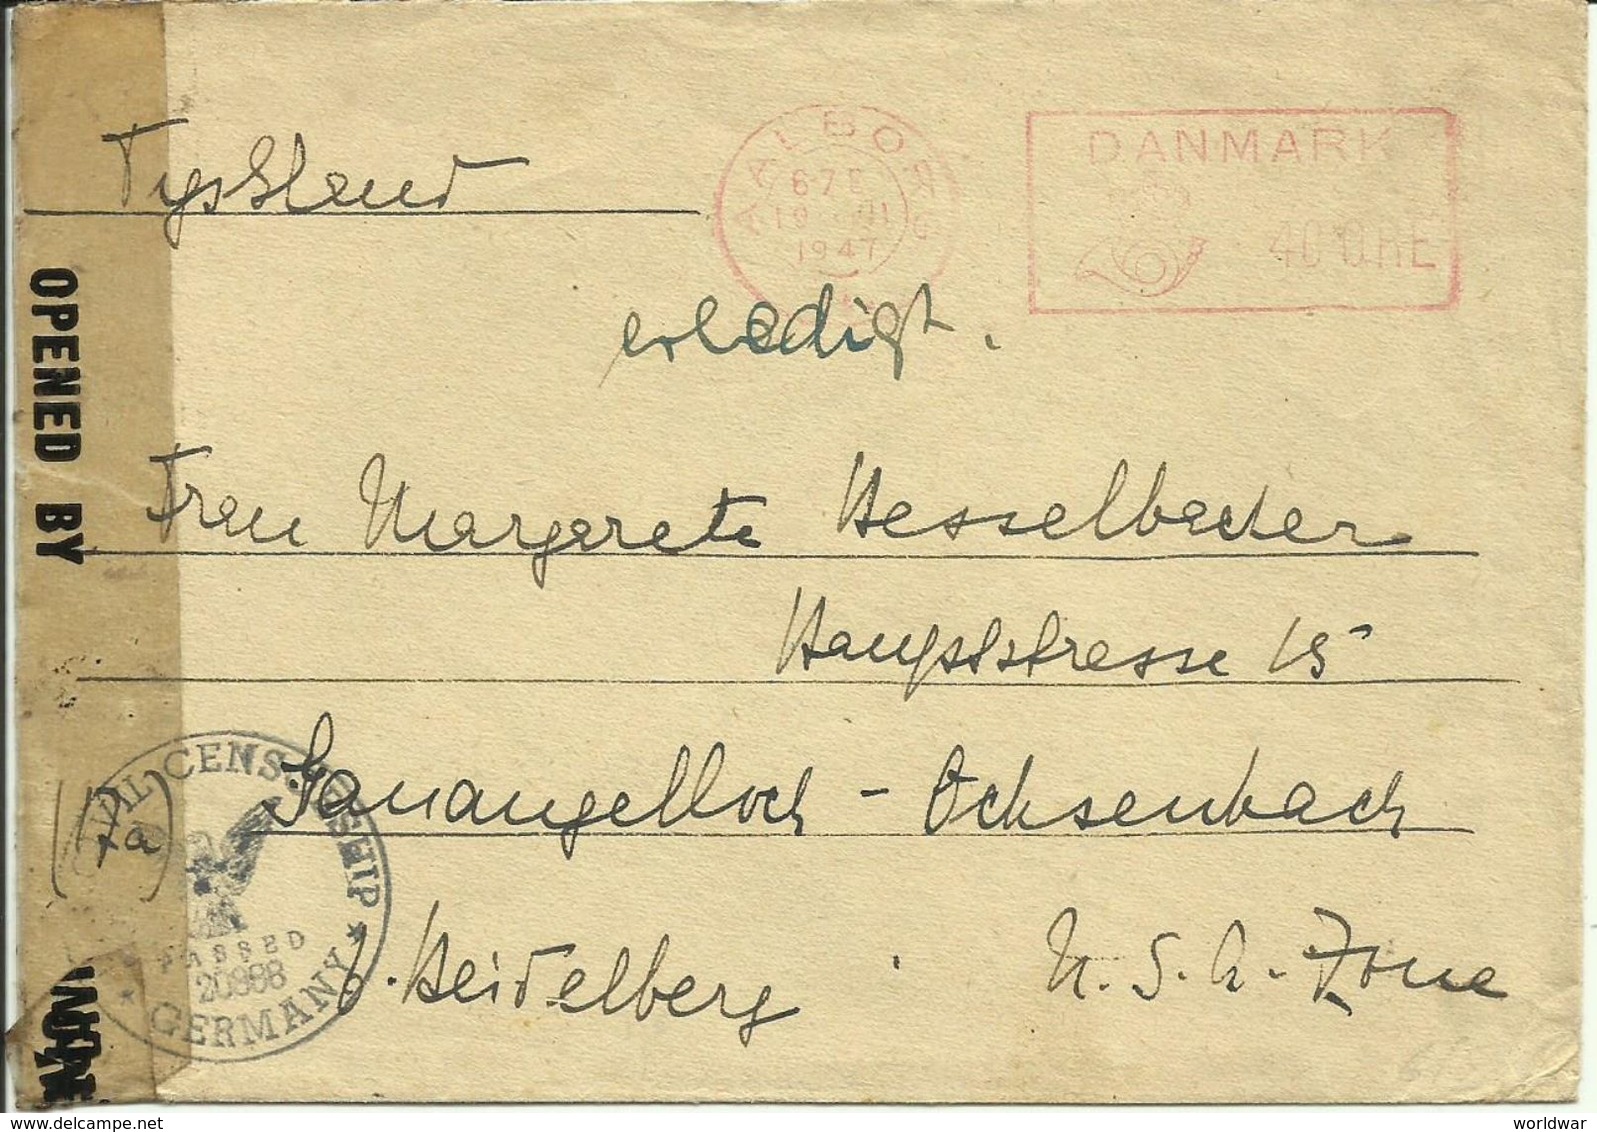 Tyskland
AALBORG
6-7 E
1947
DANMARK
40 ØRE
erledigt.
OPENED BY
Frau Margarete Hesselbacher
Hauptstrasse 15
Gauangelloch - Ochsenbach
b. Heidelberg U.S.A.-Zone
CIVIL CENSORSHIP
PASSED
20888
GERMANY
7a
worldwar